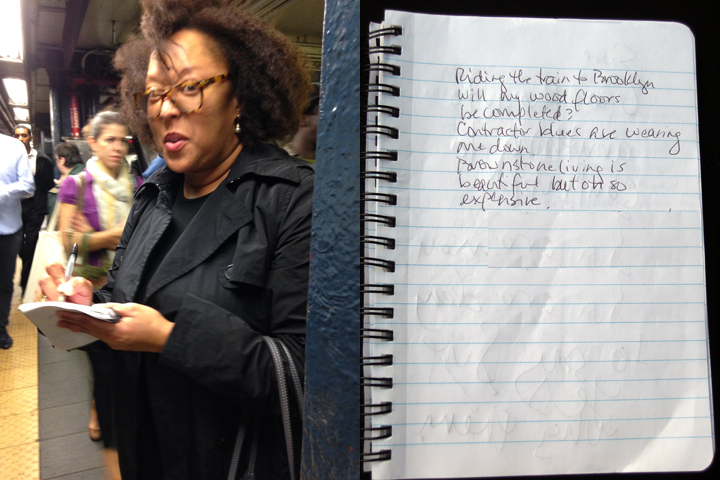 Riding the train to Brooklyn
Will my wood floors
be completed?
Contractor blues are wearing
me down.
Brownstone living is
beautiful but oh so
expensive.